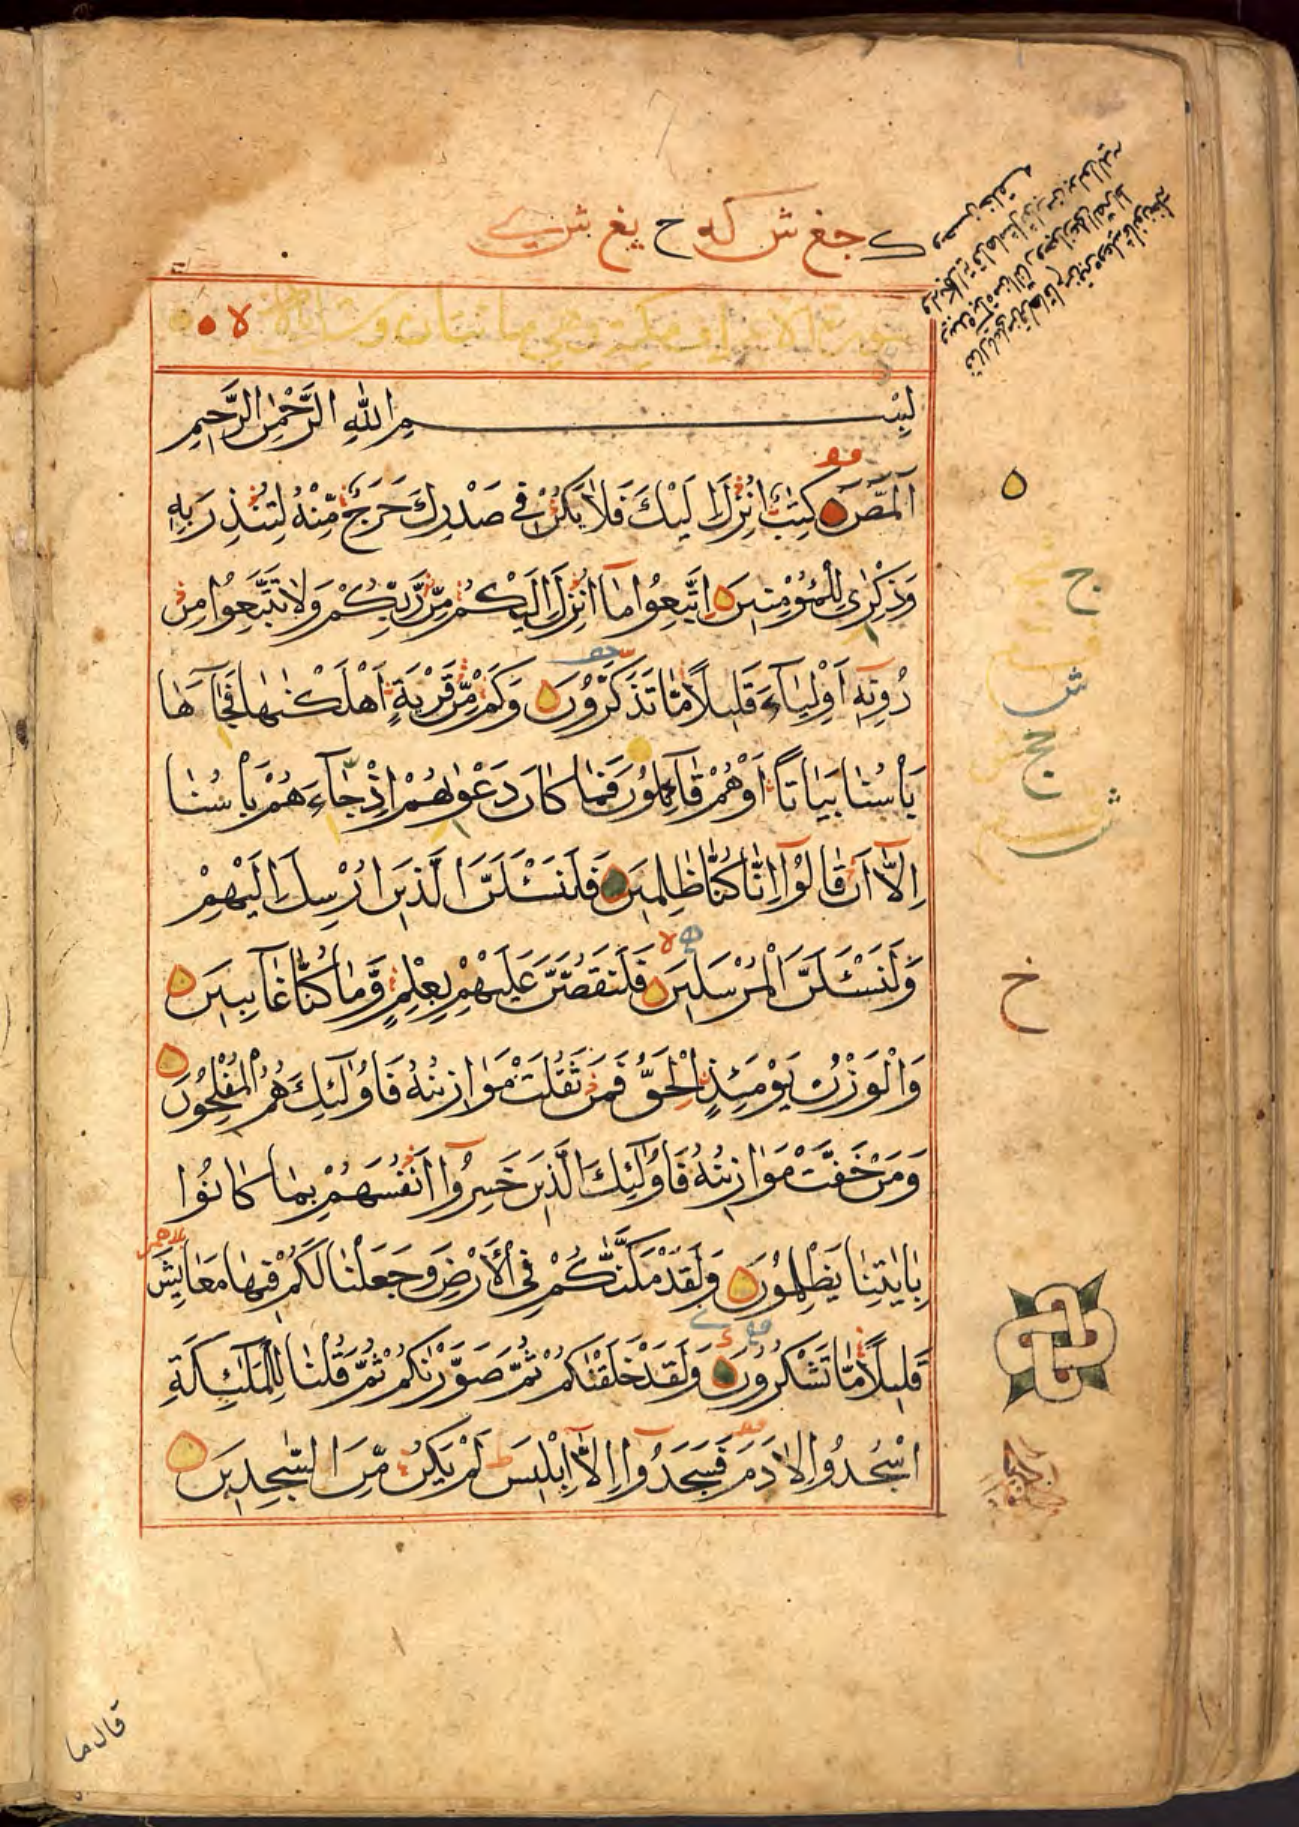 ح
سورة الاعراف مكية وهي مائتان وست اية
لا
بِسْمِ اللّٰهِ الرَّحْمٰنِ الرَّحِيمِ
الٓمّٓصٓ كِتٰبٌ اُنْزِلَ اِلَيْكَ فَلَا يَكُنْ فِي صَدْرِكَ حَرَجٌ مِّنْهُ لِتُنْذِرَ بِهِ
وَذِكْرٰى لِلْمُؤْمِنِينَ اِتَّبِعُوا مَآ اُنْزِلَ اِلَيْكُمْ مِّنْ رَّبِّكُمْ وَلَا تَتَّبِعُوا مِنْ
دُونِهِ اَوْلِيَآءَ قَلِيلًا مَّا تَذَكَّرُونَ وَكَمْ مِّنْ قَرْيَةٍ اَهْلَكْنٰهَا فَجَآءَهَا
بَأْسُنَا بَيَاتًا اَوْ هُمْ قَآئِلُونَ فَمَا كَانَ دَعْوٰىهُمْ اِذْ جَآءَهُمْ بَأْسُنَا
اِلَّآ اَنْ قَالُوٓا اِنَّا كُنَّا ظٰلِمِينَ فَلَنَسْـَٔلَنَّ الَّذِينَ اُرْسِلَ اِلَيْهِمْ
وَلَنَسْـَٔلَنَّ الْمُرْسَلِينَ فَلَنَقُصَّنَّ عَلَيْهِمْ بِعِلْمٍ وَّمَا كُنَّا غَآئِبِينَ
وَالْوَزْنُ يَوْمَئِذٍ الْحَقُّ فَمَنْ ثَقُلَتْ مَوَازِينُهُ فَاُولٰٓئِكَ هُمُ الْمُفْلِحُونَ
وَمَنْ خَفَّتْ مَوَازِينُهُ فَاُولٰٓئِكَ الَّذِينَ خَسِرُوٓا اَنْفُسَهُمْ بِمَا كَانُوا
بِاٰيٰتِنَا يَظْلِمُونَ وَلَقَدْ مَكَّنّٰكُمْ فِي الْاَرْضِ وَجَعَلْنَا لَكُمْ فِيهَا مَعَايِشَ
قَلِيلًا مَّا تَشْكُرُونَ وَلَقَدْ خَلَقْنٰكُمْ ثُمَّ صَوَّرْنٰكُمْ ثُمَّ قُلْنَا لِلْمَلٰٓئِكَةِ
اسْجُدُوا لِاٰدَمَ فَسَجَدُوٓا اِلَّآ اِبْلِيسَ لَمْ يَكُنْ مِّنَ السّٰجِدِينَ
ج
ش
خ
قال ما